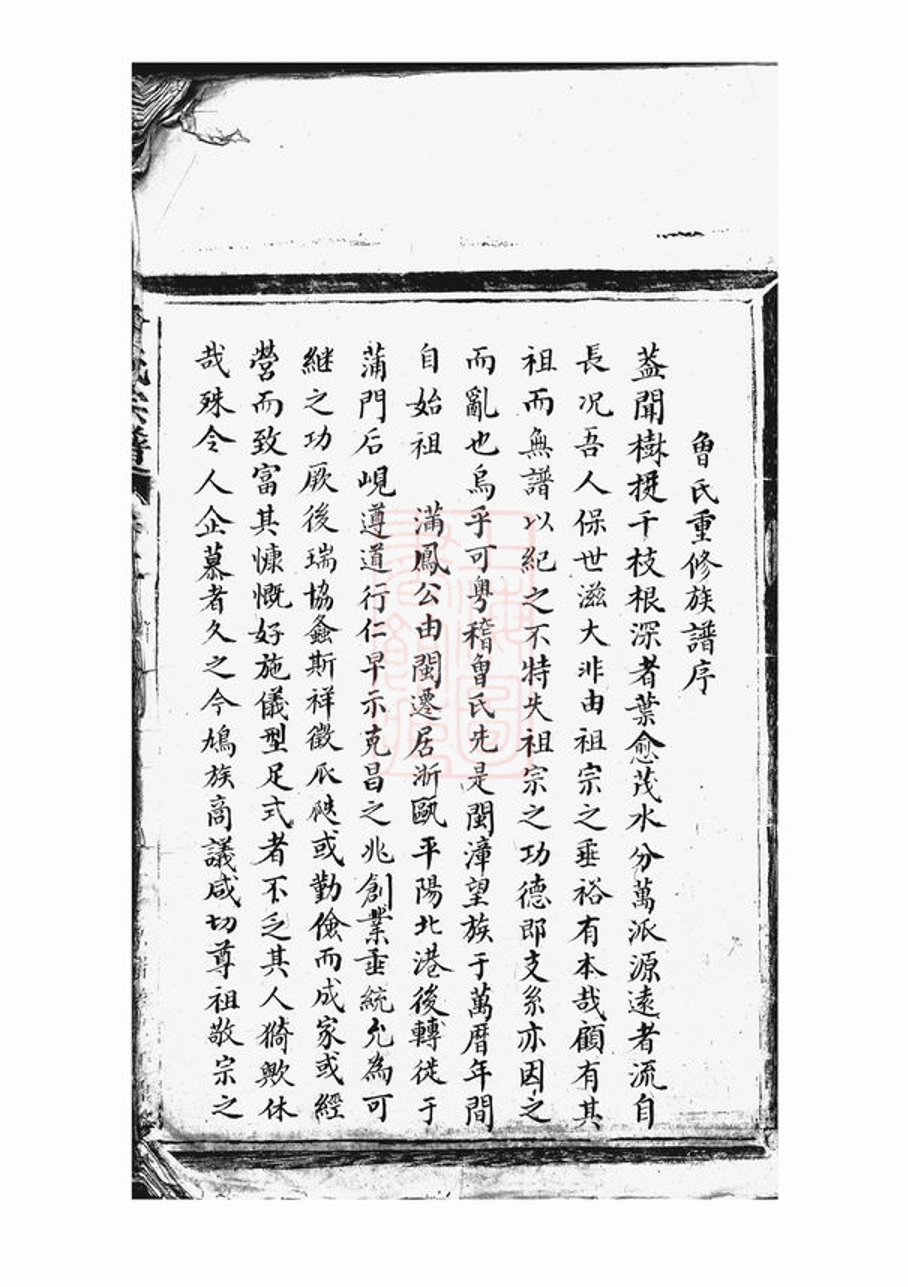 魯氏重修族譜序
葢聞樹挺千枝根深者葉愈茂水分萬派源遠者流自
長况吾人保世滋大非由祖宗之垂裕有本哉顧有其
祖而無譜以紀之不特失祖宗之功德即支系亦因之
而亂也烏乎可粤稽魯氏先是閩漳望族于萬曆年間
自始祖 滿鳳公由閩遷居浙甌平陽北港後轉徙于
蒲門后峴遵道行仁早示克昌之兆創業垂統允為可
継之功厥後瑞協螽斯祥徵瓜瓞或勤儉而成家或經
營而致富其慷慨好施儀型足式者不乏其人猗歟休
哉殊令人企慕者久之今鳩族商議咸切尊祖敬宗之